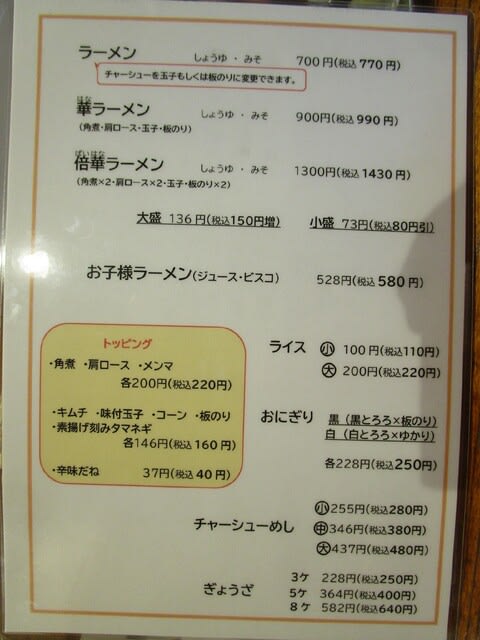 ラーメン しょうゆ ・ みそ 700円(税込770円)
チャーシューを玉子もしくは板のりに変更できます。
はな
華ラーメン しょうゆ ・ みそ 900円(税込990円)
(角煮・肩ロース・玉子・板のり)
ばいはな
倍華ラーメン しょうゆ ・ みそ 1300円(税込1430円)
(角煮×2・肩ロース×2・玉子・板のり×2)
大盛 136円(税込150円増) 小盛 73円(税込80円引)
お子様ラーメン(ジュース・ビスコ) 528円(税込580円)
トッピング
・角煮 ・肩ロース ・メンマ
各200円(税込220円)
・キムチ ・味付玉子 ・コーン ・板のり
・素揚げ刻みタマネギ
各146円(税込160円)
・辛味だね 37円(税込40円)
ライス ㊙小 100円(税込110円)
大 200円(税込220円)
おにぎり 黒(黒とろろ×板のり)
白(白とろろ×ゆかり)
各228円(税込250円)
チャーシューめし 小255円(税込280円)
㊥346円(税込380円)
大437円(税込480円)
ぎょうざ 3ケ 228円(税込250円)
5ケ 364円(税込400円)
8ケ 582円(税込640円)